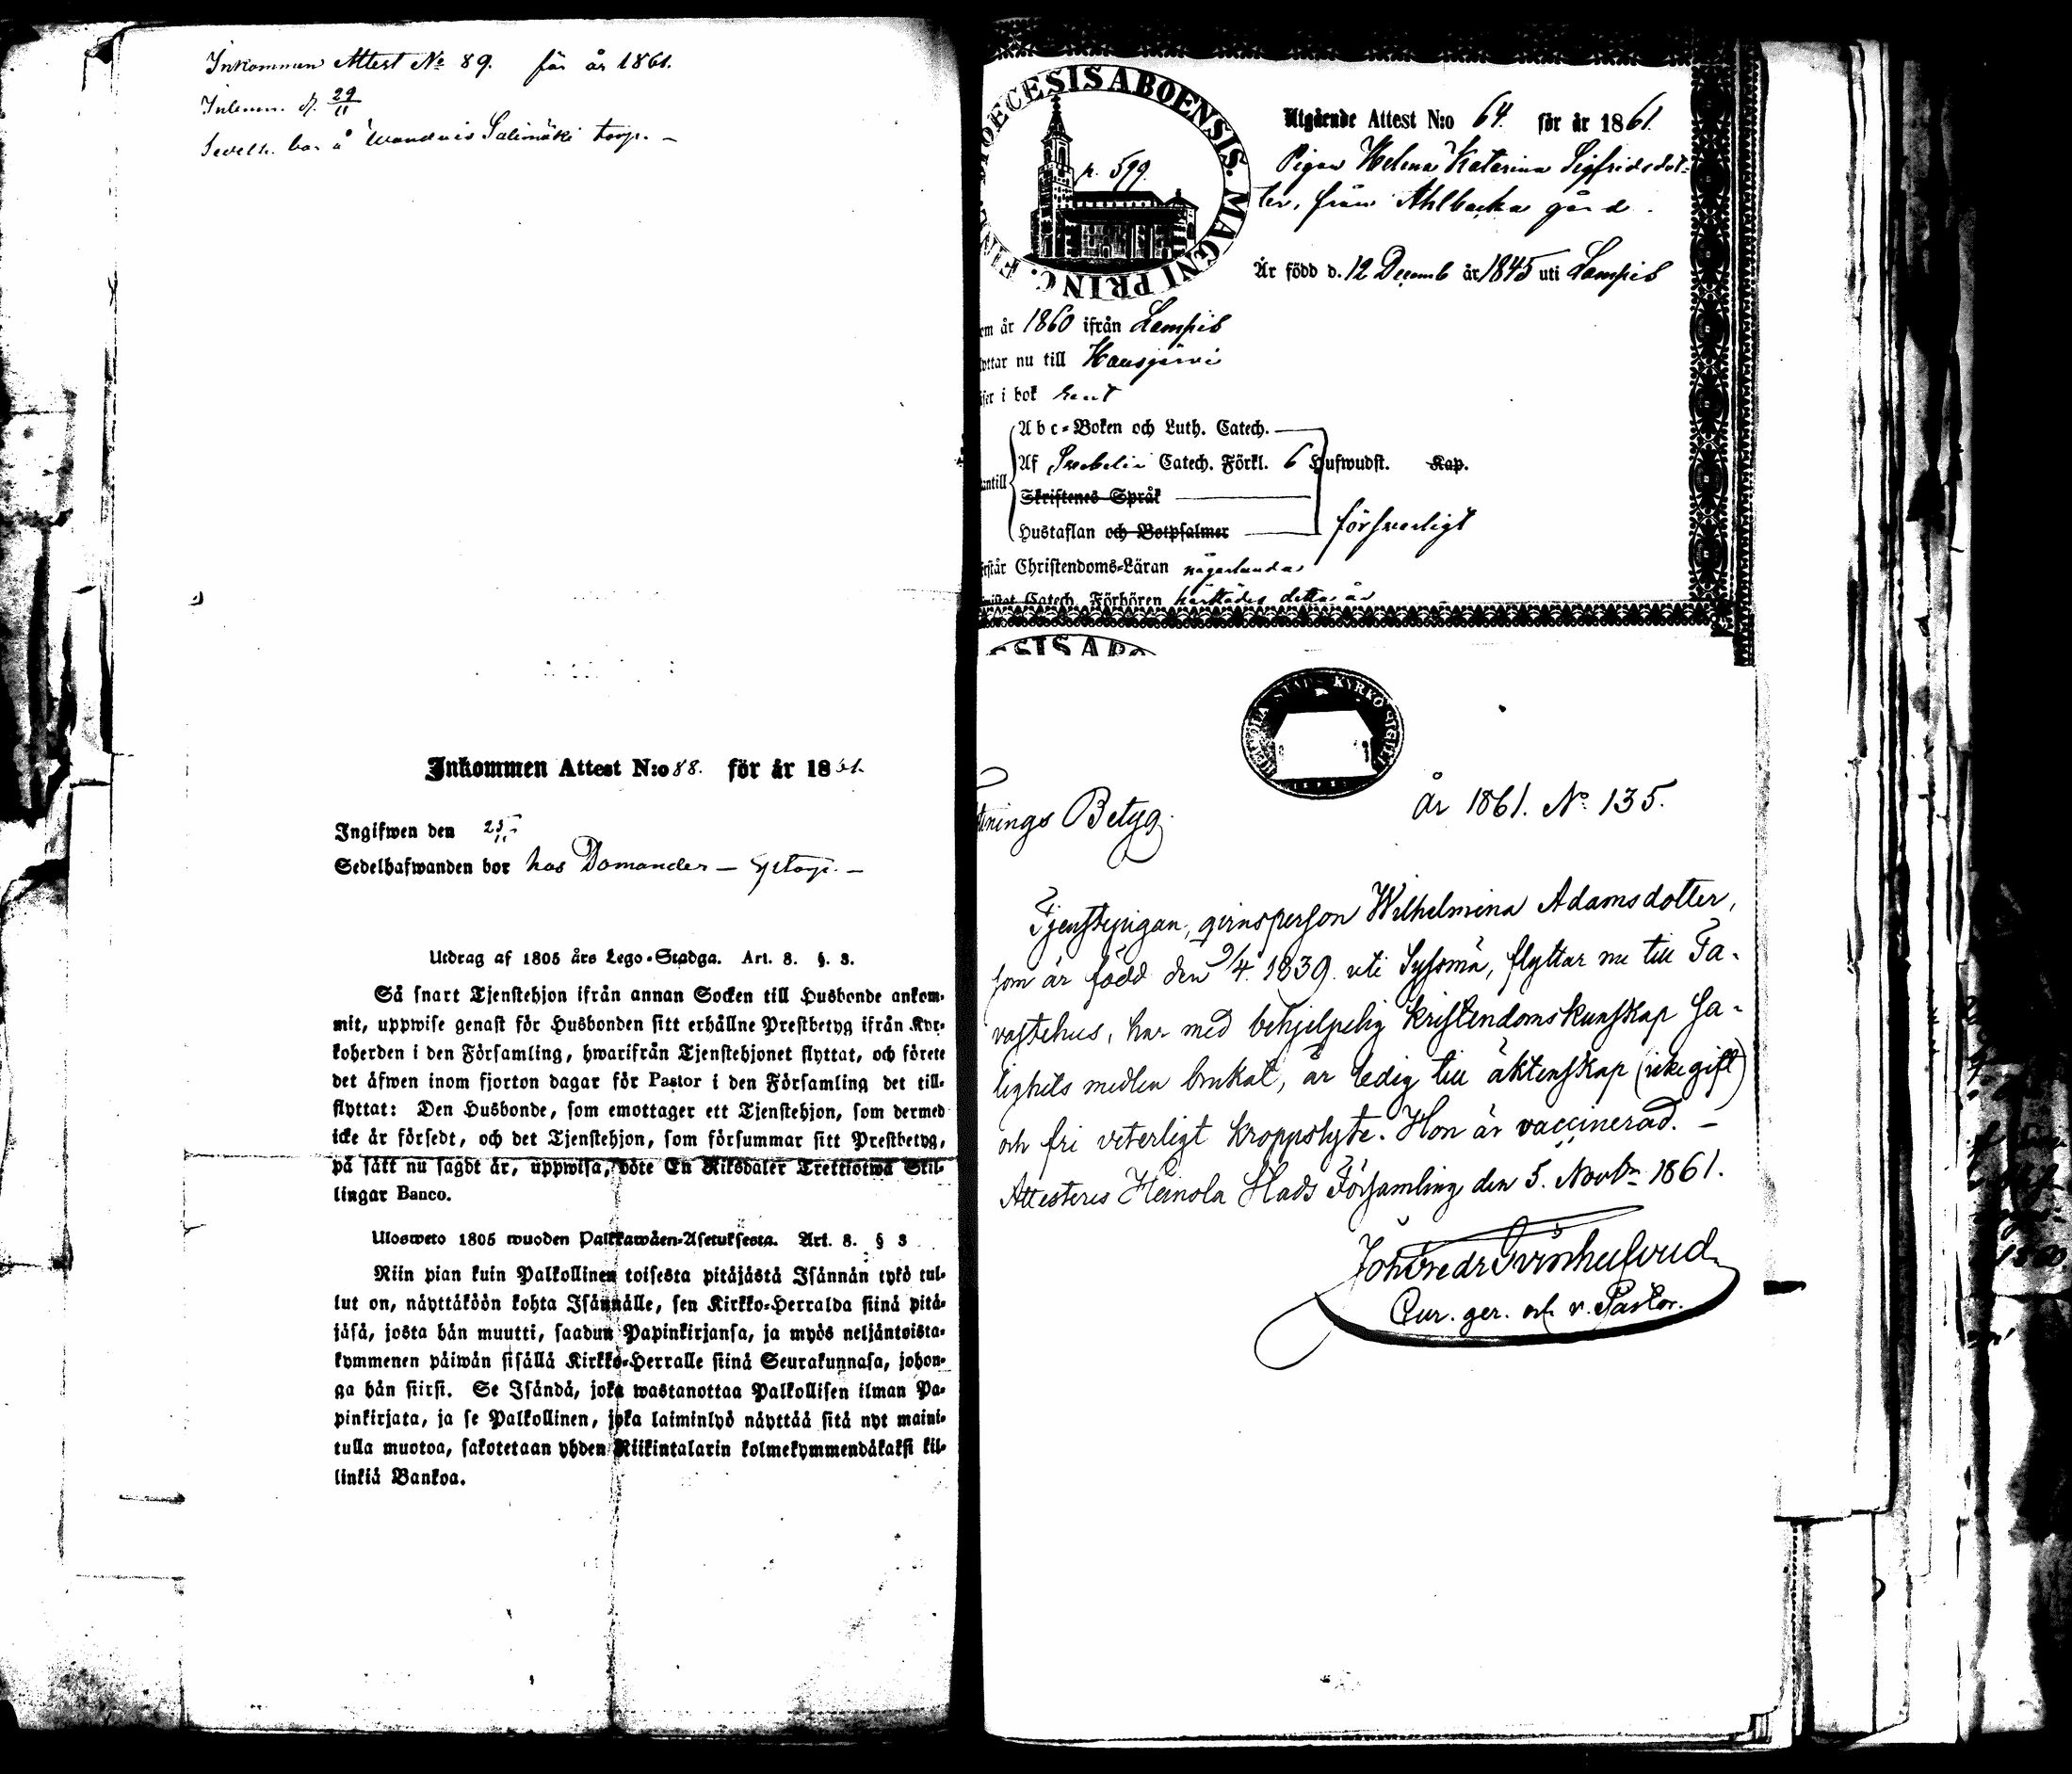 Inkommen Attest No 89. för år 1861.
Inlemn. d. 29/11
Sedelh. bor å Wandais Salimäki torp. —
Inkommen Attest N:o 88. för år 1861.
Ingifwen den 25/11
Sedelhafwanden bor hos Domander —
Utdrag af 1805 års Lego-Stadga. Art. 8. §. 3.
Så snart Tjenstehjon ifrån annan Socken till Husbonde ankom-
mit, uppwise genast för Husbonden sitt erhållne Prestbetyg ifrån Kyr-
koherden i den Församling, hwarifrån Tjenstehjonet flyttat, och förete
det äfwen inom fjorton dagar för Pastor i den Församling det till-
flyttat: Den Husbonde, som emottager ett Tjenstehjon, som dermed
icke är försedt, och det Tjenstehjon, som försummar sitt Prestbetyg,
på sätt nu sagdt är, uppwisa, böte En Riksdaler Trettiotwå Skil-
lingar Banco.
Ulosweto 1805 wuoden Palkkawäen-Asetuksesta. Art. 8. § 3
Niin pian kuin Palkollinen toisesta pitäjästä Isännän tykö tul-
lut on, näyttäköön kohta Isännälle, sen Kirkko-Herralda siinä pitä-
jäsä, josta hän muutti, saadun Papinkirjansa, ja myös neljäntoista-
kymmenen päiwän sisällä Kirkko-Herralle siinä Seurakunnasa, johon-
ga hän siirsi. Se Isändä, joka wastanottaa Palkollisen ilman Pa-
pinkirjata, ja se Palkollinen, joka laiminlyö näyttää sitä nyt maini-
tulla muotoa, sakotetaan yhden Riikintalarin kolmekymmendäkaksi kil-
linkiä Bankoa.
DIOECESIS ABOENSIS. MAGNI PRINC. FINL.
p. 599.
Utgående Attest N:o 64. för år 1861.
Pigan Helena Katarina Sigfridsdot-
ter, från Ahlbacka gård.
Är född d. 12 Decemb år 1845 uti Lampis
em år 1860 ifrån Lampis
yttar nu till Hausjärvi
äser i bok rent
Abc-Boken och Luth. Catech.
Af Svebelii Catech. Förkl. 6 Hufwudst. Kap.
antill
Skriftenes Språk
Hustaflan och Botpsalmer
försvarligt
rstår Christendoms-Läran någorlunda
Catech. Förhören härstädes detta år
ESIS ABO
HEINOLA STADS KYRKO SIGILL
ttnings Betyg.
år 1861. No 135.
Tjenstepigan, qvinsperson Wilhelmina Adamsdotter,
som är född den 9/4. 1839. uti Syssmä, flyttar nu till Ta-
vastehus, har med behjelpelig kristendomskunskap sa-
lighets medlen brukat, är ledig till äktenskap (icke gift)
och fri veterligt kroppslyte. Hon är vaccinerad. —
Attesteres Heinola Stads Församling den 5. Novbr 1861.
Joh Fredr Svinhufvud
Cur. ger. och v. Pastor.